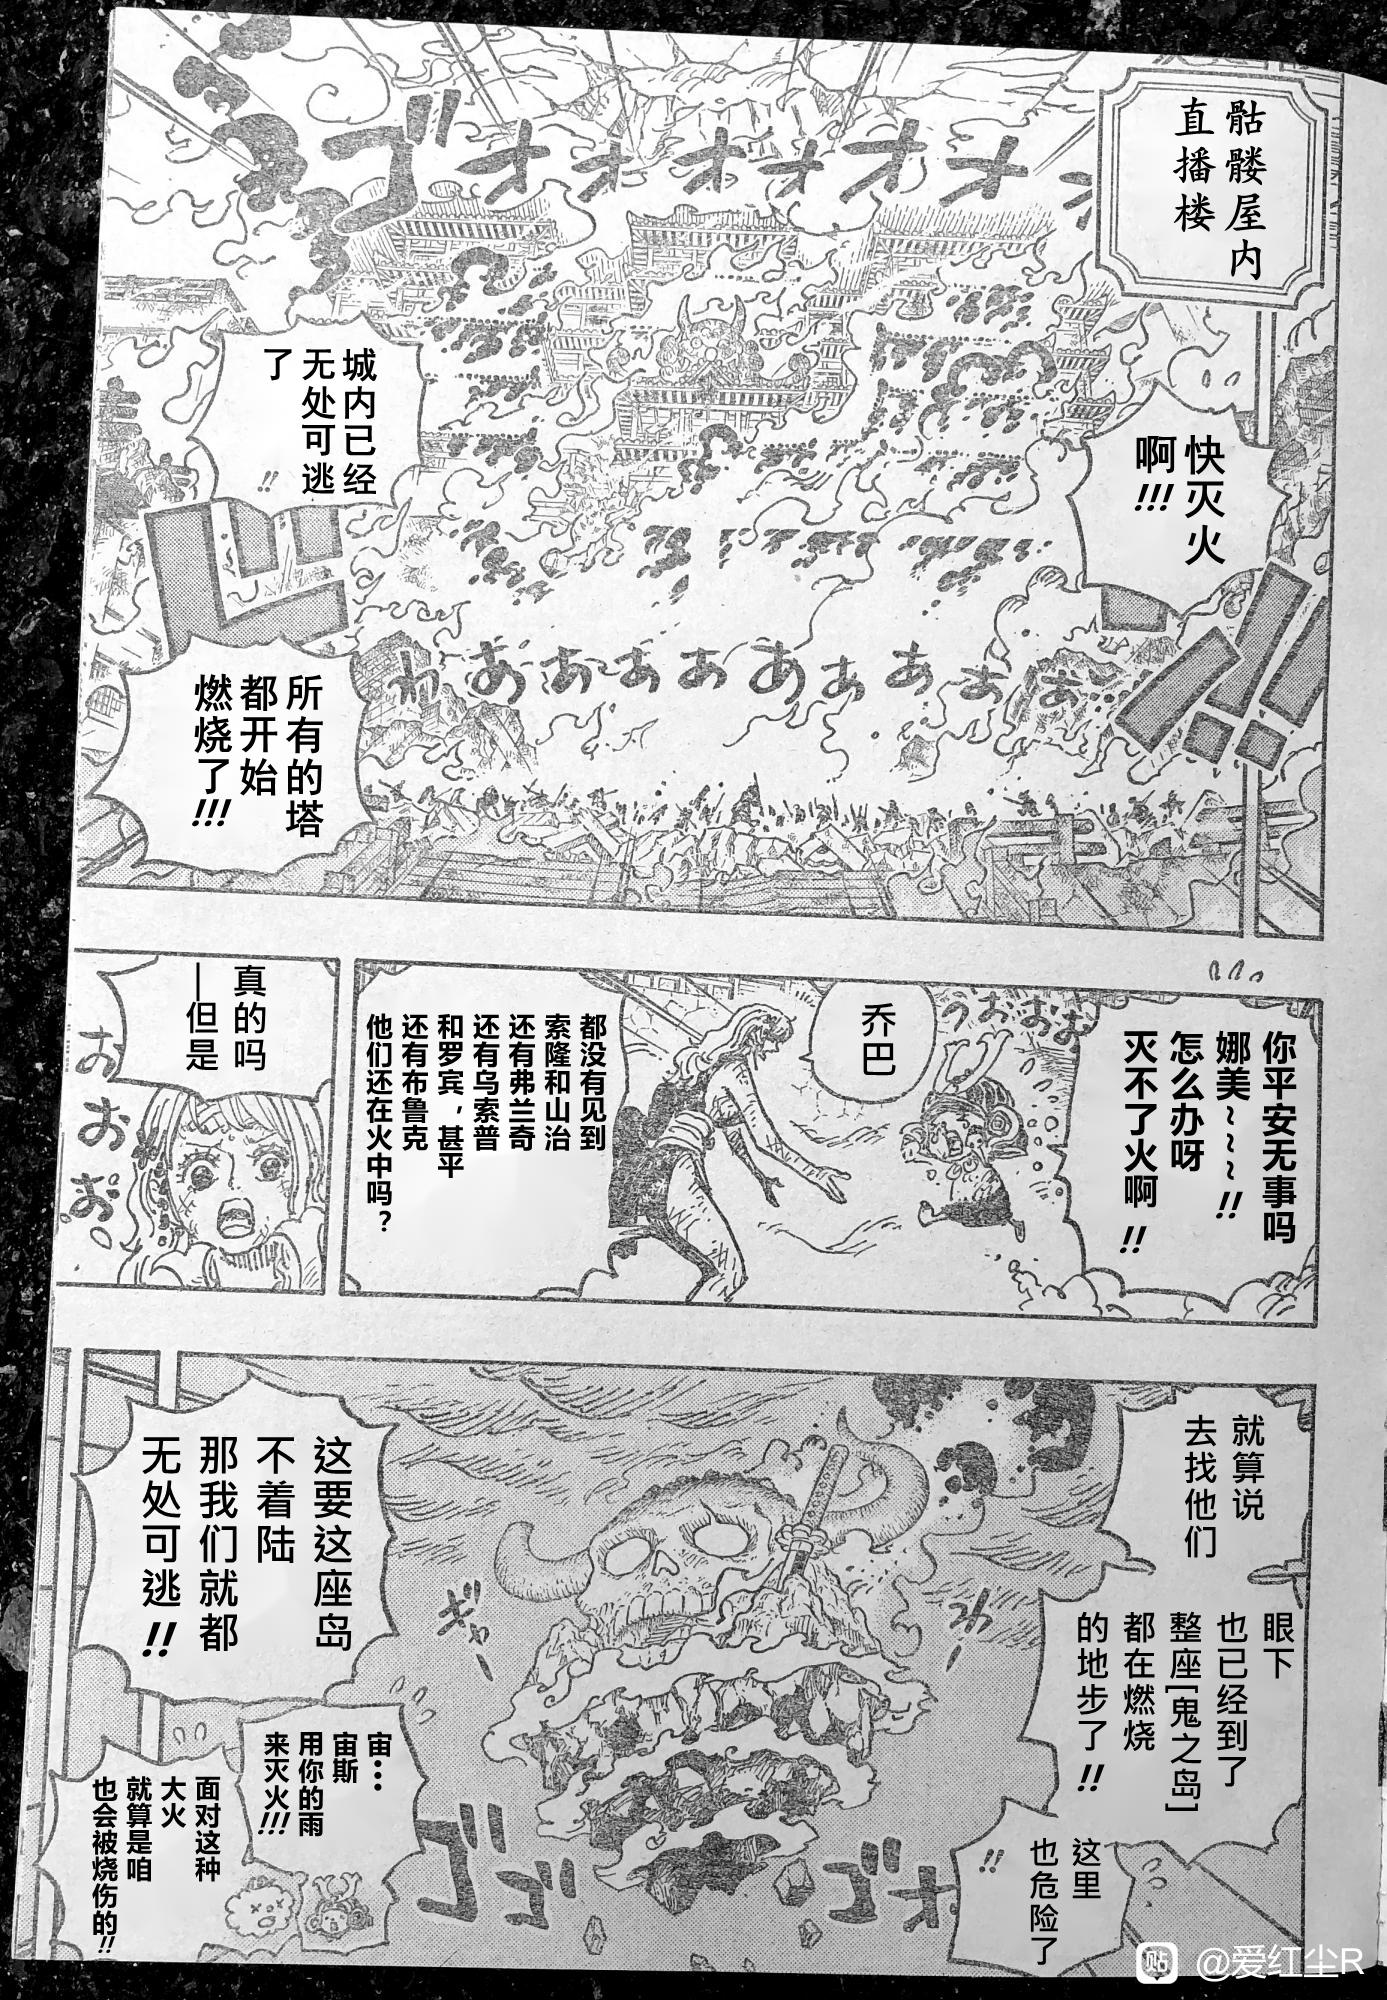 骷髅屋内
直播楼
ゴオオオオオオオ
快灭火
啊!!!
城内已经
无处可逃
了!!
所有的塔
都开始
燃烧了!!!
わあああああああああ
你平安无事吗
娜美~~~!!
怎么办呀
灭不了火啊!!
うおおお
乔巴
都没有见到
索隆和山治
还有弗兰奇
还有乌索普
和罗宾，甚平
还有布鲁克
他们还在火中吗？
真的吗
—但是
おおお
就算说
去找他们
眼下
也已经到了
整座[鬼之岛]
都在燃烧
的地步了!!
这里
也危险了
!!
这要这座岛
不着陆
那我们就都
无处可逃!!
宙…
宙斯
用你的雨
来灭火!!!
面对这种
大火
就算是咱
也会被烧伤的!!
ギャー
わー
ゴゴゴ
ゴオ
贴 @爱红尘R